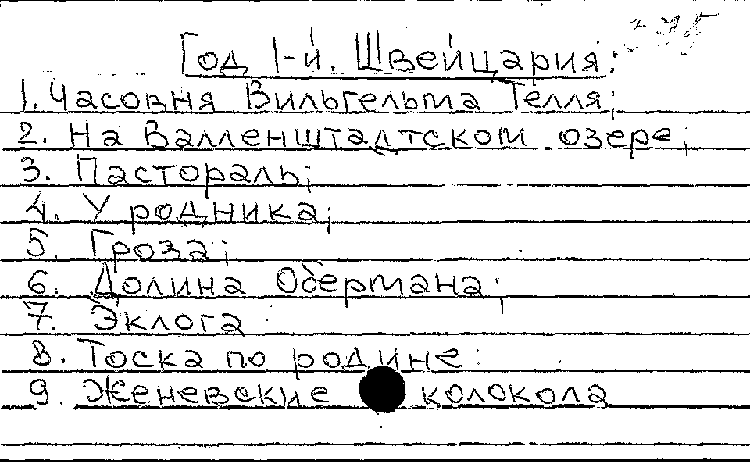 Год 1-й. Швейцария;
1. Часовня Вильгельма Телля;
2. На Валленштадтском озере;
3. Пастораль;
4. У родника;
5. Гроза;
6. Долина Обермана;
7. Эклога
8. Тоска по родине:
9. Женевские колокола